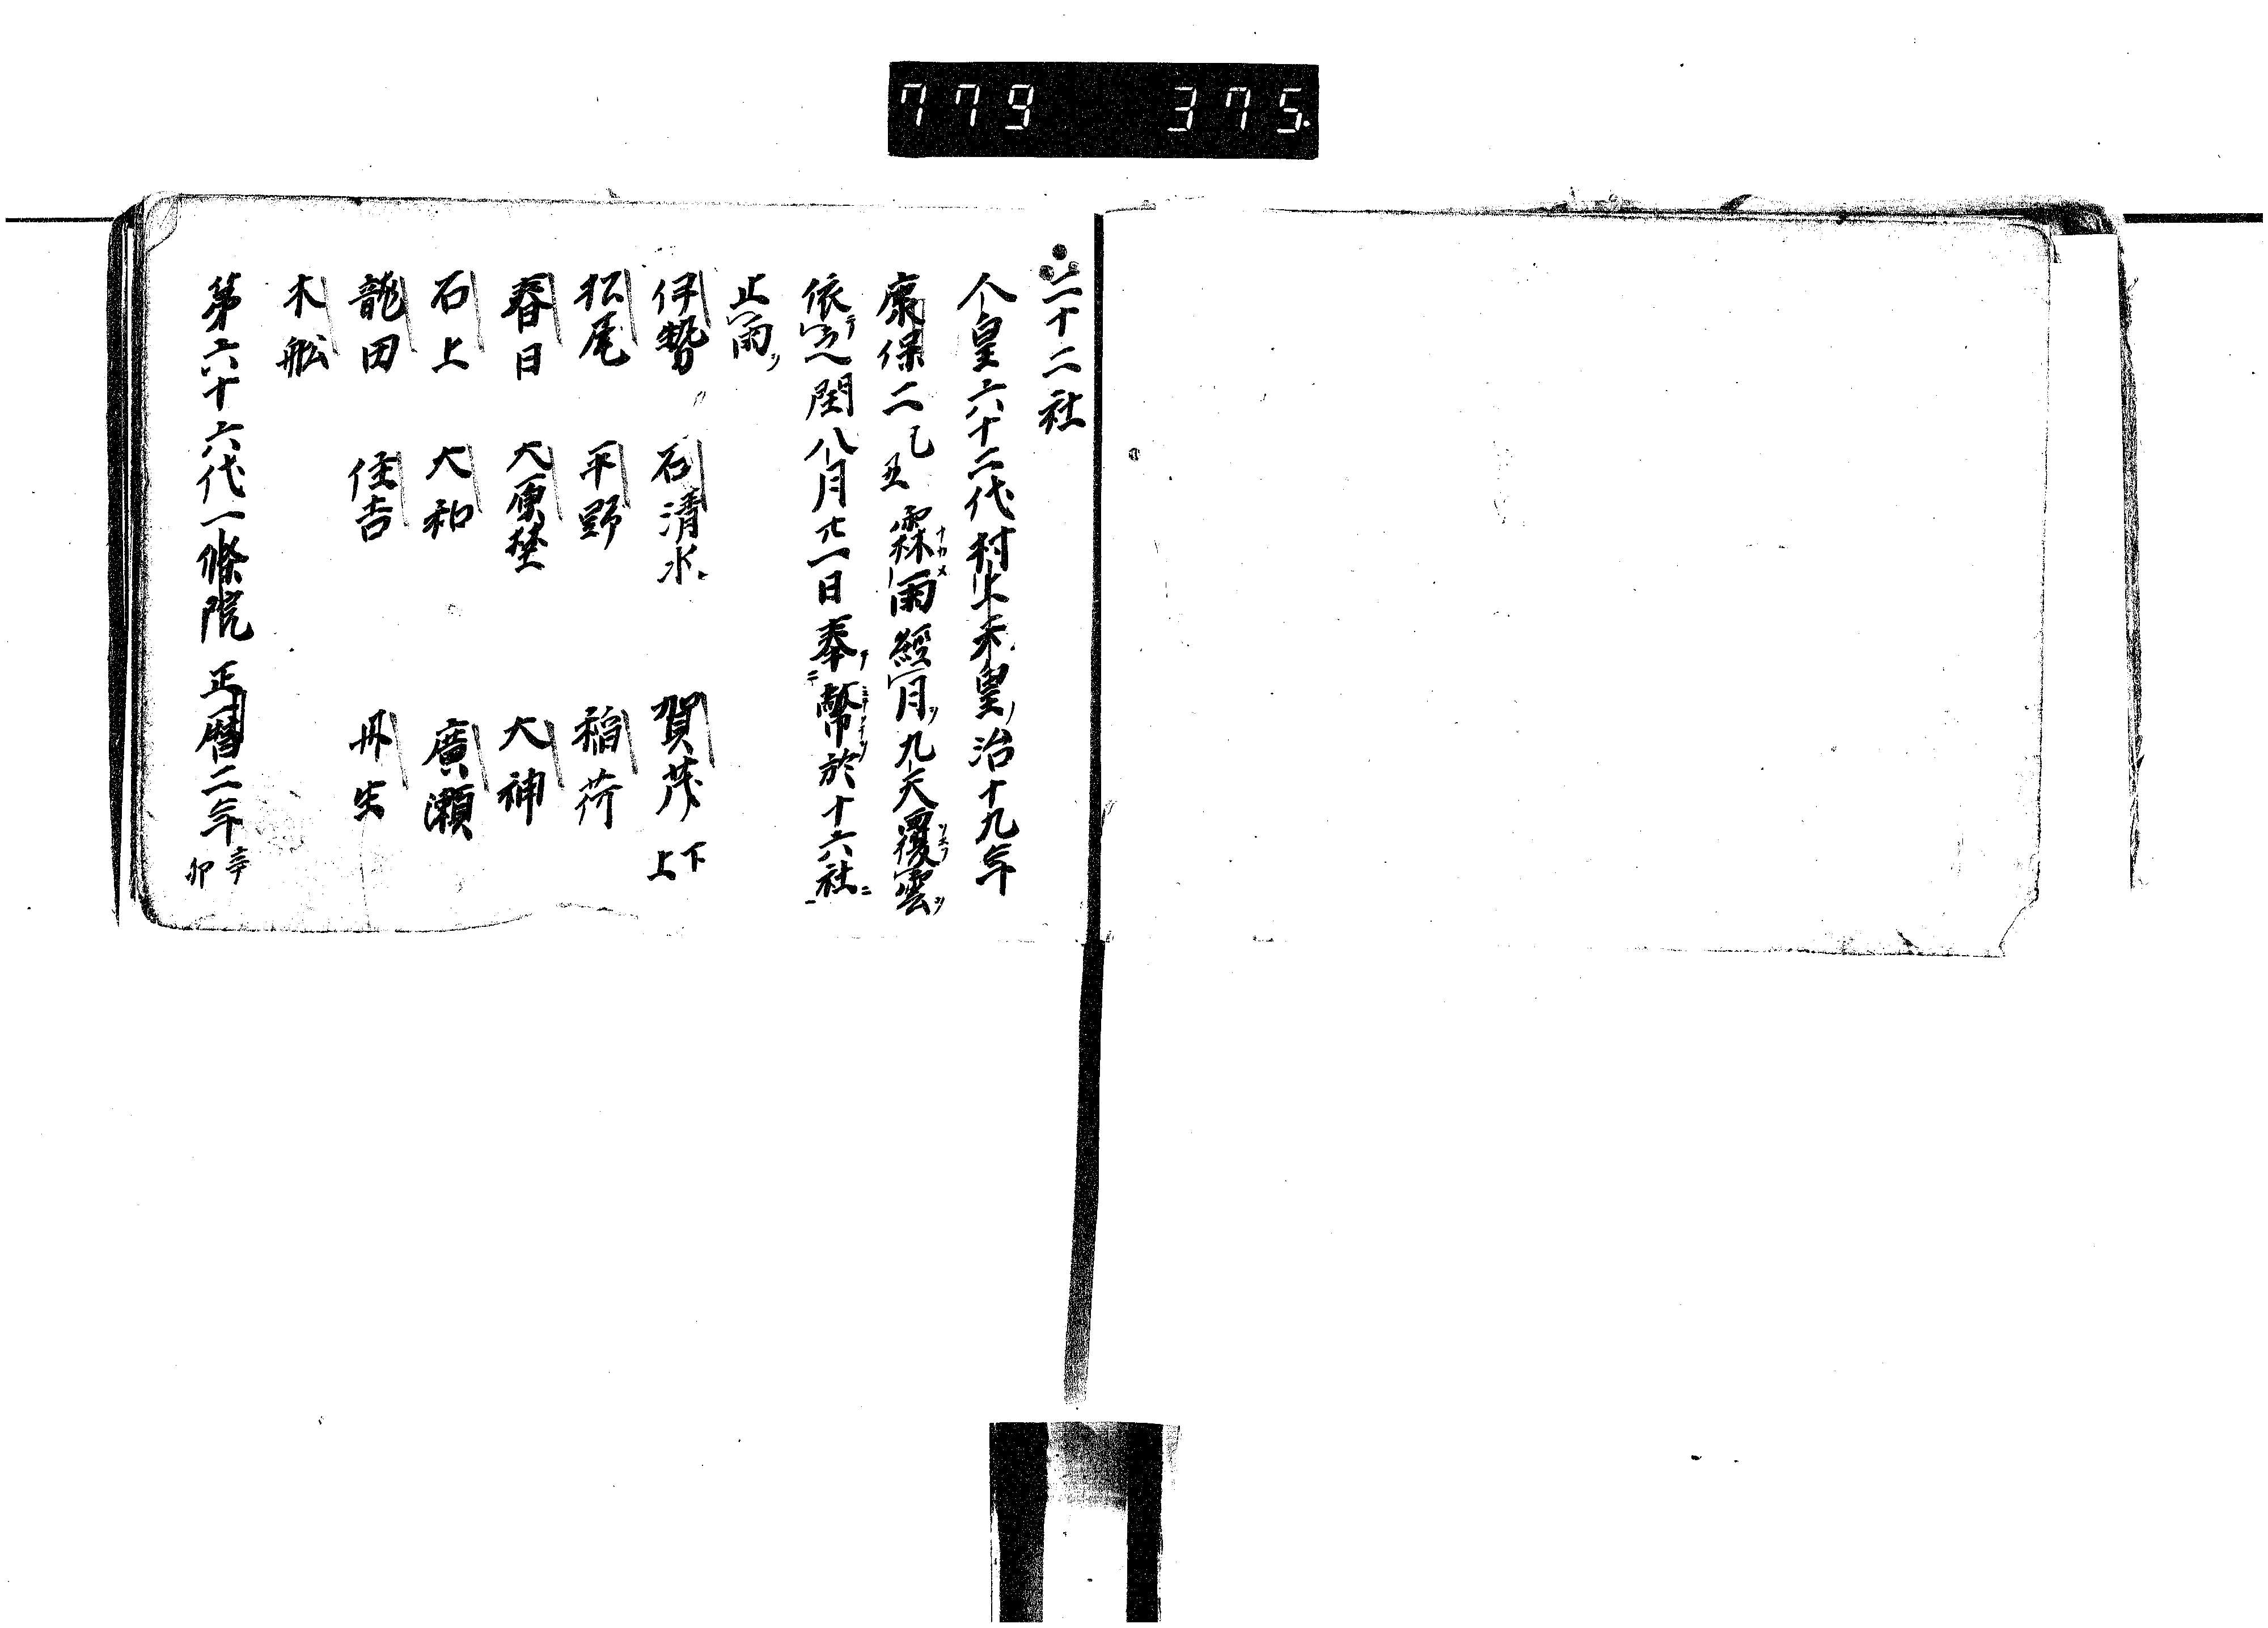 779 375
二十二社
人皇六十二代村上天皇治十九年
康保二乙丑霖雨經月九天覆雲
依之閏八月廿一日奉幣於十六社
止雨
伊勢 石清水 賀茂下上
松尾 平野 稲荷
春日 大原野 大神
石上 大和 廣瀬
龍田 住吉 丹生
木舩
第六十六代一條院正暦二年辛卯